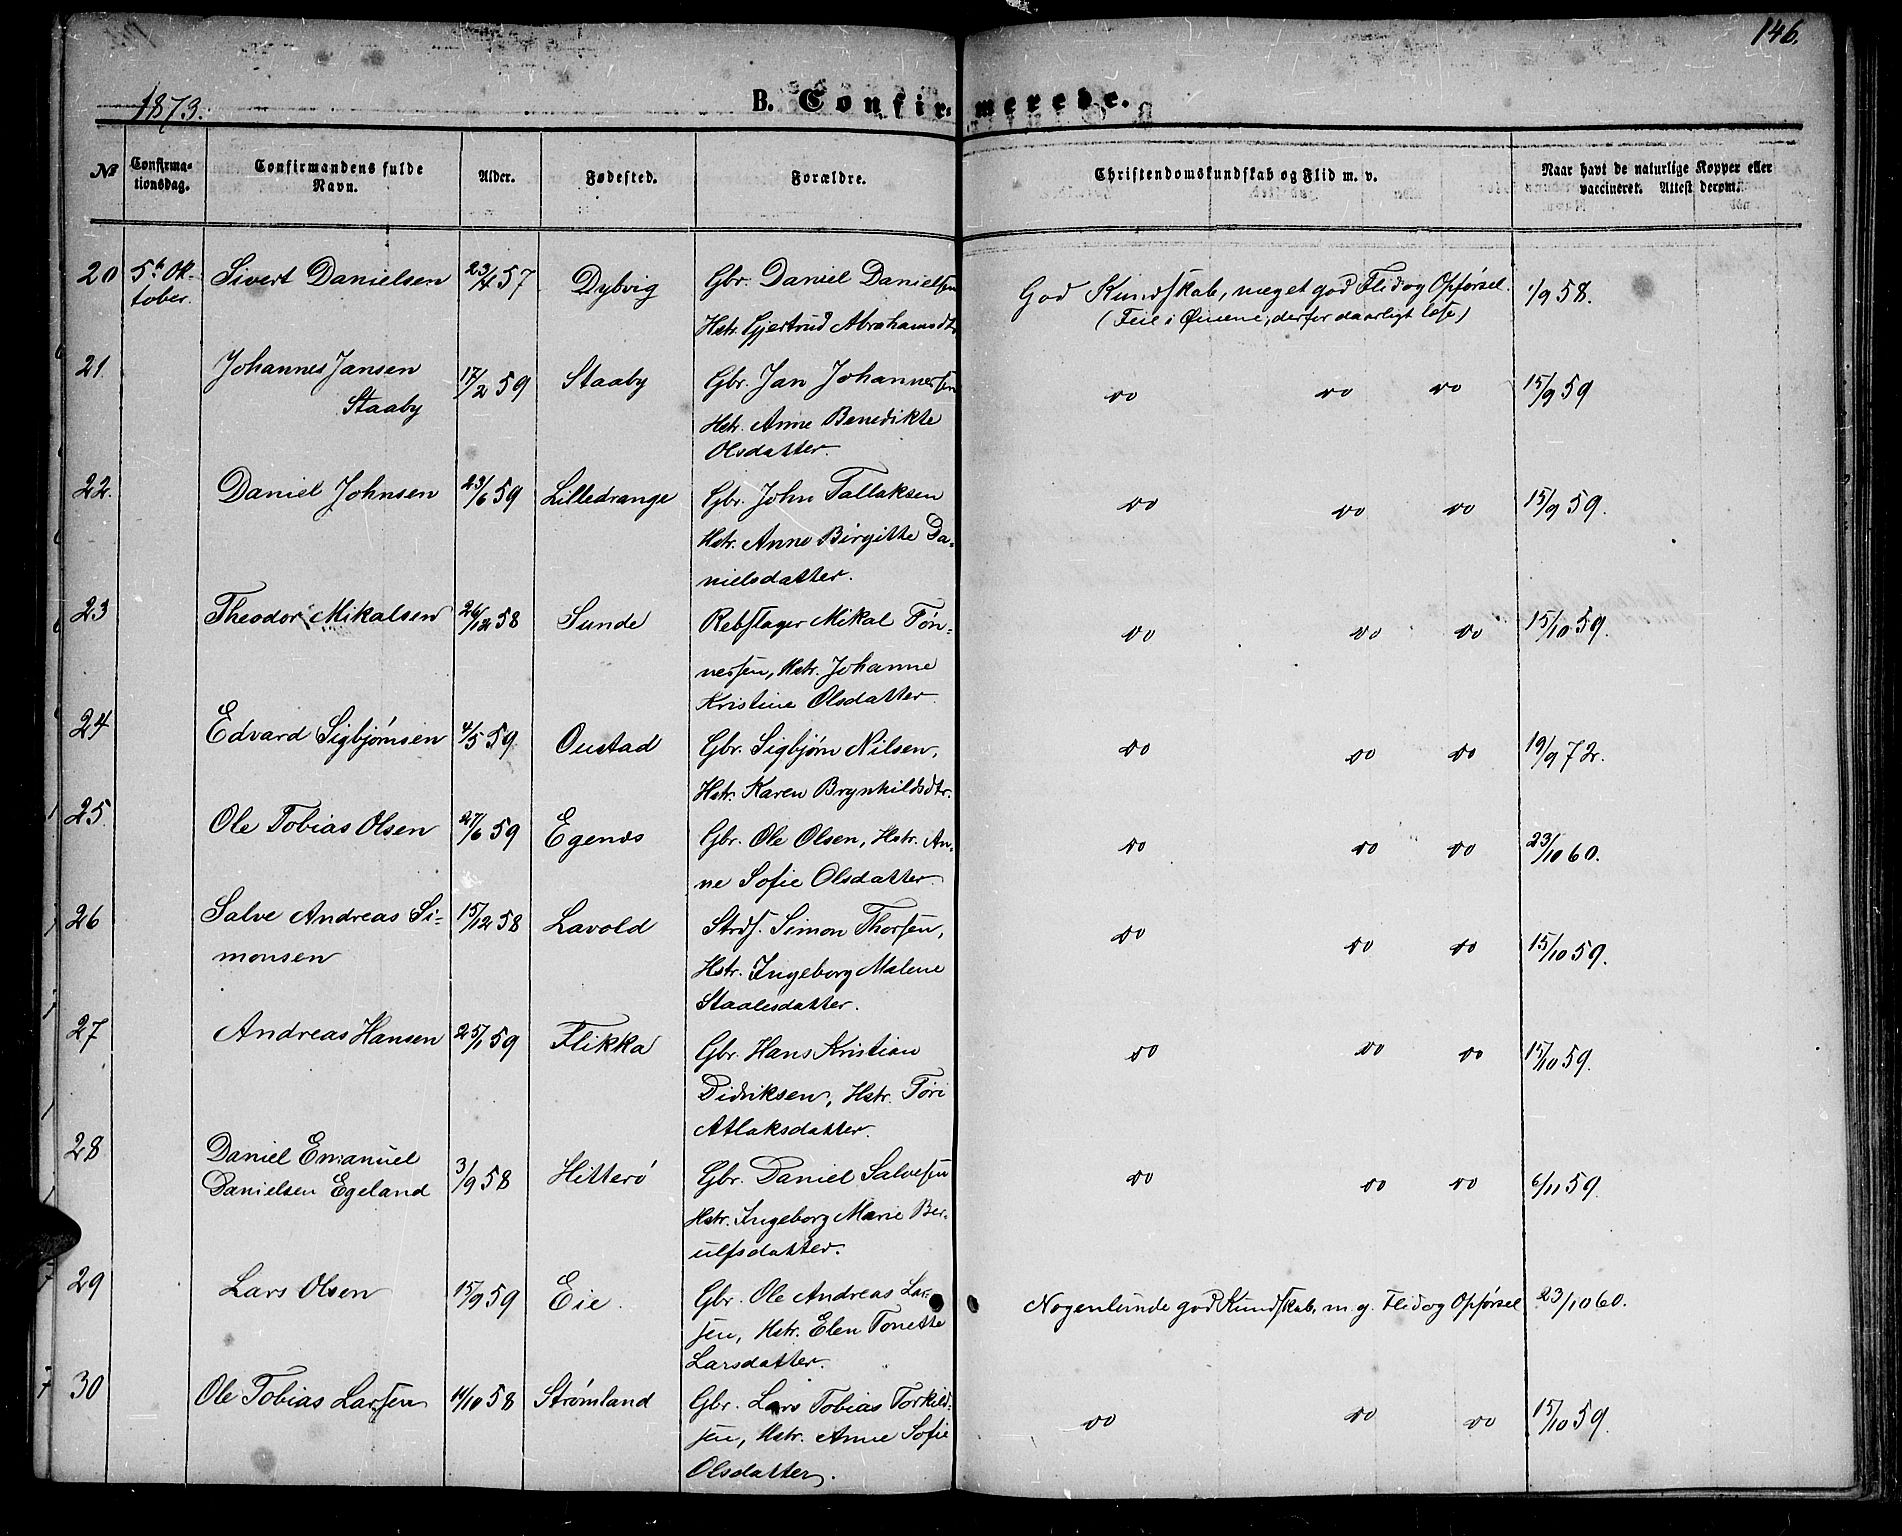 146.
1873.
B. Confirmerede.
No Confirmationsdag. Confirmandens fulde Navn. Alder. Fødested. Forældre. Christendomskundskab og Flid m. v. Naar havt de naturlige Kopper eller vaccineret. Attest derom.
20 5te Oktober. Sivert Danielsen 23/4 57 Dybvig Gbr. Daniel Danielsen God Kundskab, meget god Flid og Opførsel. 1/9 58.
Hstr. Gjertrud Abrahamsdtr. (Feil i Øinene, derfor daarligt læse)
21. Johannes Jansen 17/2 59 Staaby Gbr. Jan Johannessen do do do 15/9 59
Staaby Hstr. Anne Benedikte
Olsdatter.
22. Daniel Johnsen 23/6 59 Lilledrange Gbr. John Tallaksen do do do 15/9 59.
Hstr. Anne Birgitte Da-
nielsdatter.
23 Theodor Mikalsen 26/12 58 Sunde Rebslager Mikal Tøn- do do do 15/10 59.
nessen, Hstr. Johanne
Kristine Olsdatter.
24 Edvard Sigbjørnsen 4/5 59 Oustad Gbr. Sigbjørn Nilsen, do do do 19/9 72.
Hstr. Karen Brynhildsdtr.
25. Ole Tobias Olsen 27/6 59 Egenes Gbr. Ole Olsen, Hstr. An- do do do 23/10 60.
ne Sofie Olsdatter.
26 Salve Andreas Si- 15/12 58 Lavold Strds. Simon Thorsen, do do do 15/10 59.
monsen Hstr. Ingeborg Malene
Staalesdatter.
27 Andreas Hansen 25/1 59 Flikka Gbr. Hans Kristian do do do 15/10 59.
Didriksen, Hstr. Tøri
Atlaksdatter.
28 Daniel Emanuel 3/9 58 Hitterø Gbr. Daniel Salvesen do do do 6/11 59.
Danielsen Egeland Hstr. Ingeborg Marie Ber-
ulfsdatter.
29 Lars Olsen 15/9 59 Eie. Gbr. Ole Andreas Lar- Nogenlunde god Kundskab, m. g. Flid og Opførsel 23/10 60.
sen, Hstr. Elen Tonette
Larsdatter.
30 Ole Tobias Larsen 14/10 58 Strømland Gbr. Lars Tobias Torkild- do do do 15/10 59.
sen, Hstr. Anne Sofie
Olsdatter.